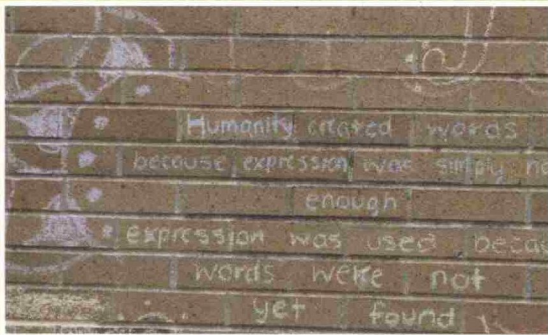 Humanity created words
because expression was simply no
enough
expression was used becau
words were not
yet found